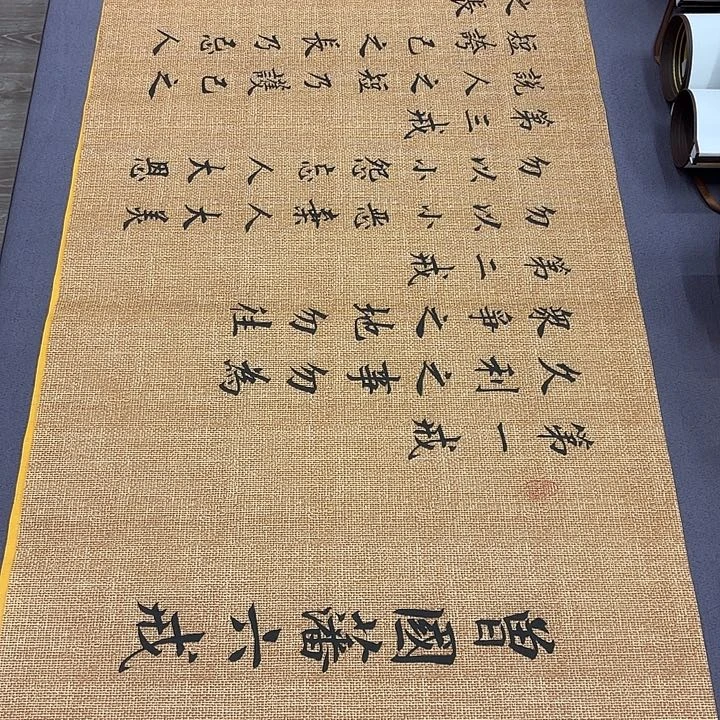 曾國藩六戒
第一戒
久利之事勿為
衆爭之地勿往
第二戒
勿以小惡棄人大美
勿以小怨忘人大恩
第三戒
說人之短乃護己之
短誇己之長乃忌人
之長